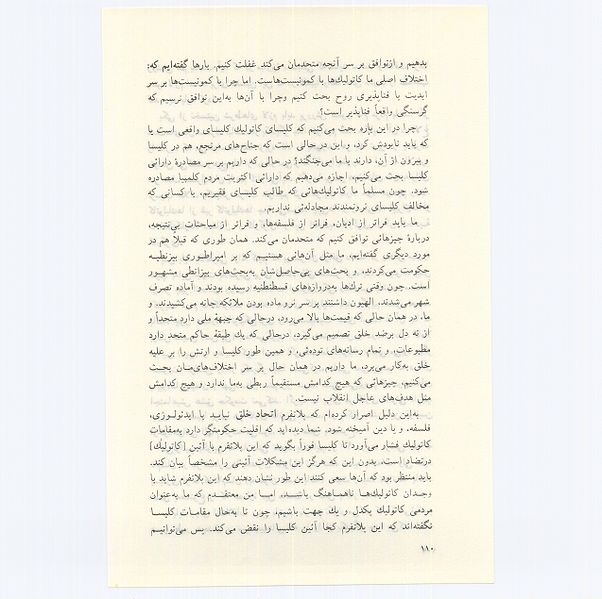 بدهیم و ازتوافق بر سر آنچه متحدمان می‌کند غفلت کنیم. بارها گفته‌ایم که:
اختلاف اصلی ما کاتولیك‌ها با کمونیست‌هاست. اما چرا با کمونیست‌ها بر سر
ابدیت یا فناپذیری روح بحث کنیم وچرا با آن‌ها به‌این توافق نرسیم که
گرسنگی واقعاً فناپذیر است؟
چرا در این باره بحث می‌کنیم که کلیسای کاتولیك کلیسای واقعی است یا
که باید نابودش کرد، و این در حالی است که جناح‌های مرتجع، هم در کلیسا
و بیرون از آن، دارند با ما می‌جنگند؟ در حالی که داریم بر سر مصادرهٔ دارائی
کلیسا بحث می‌کنیم، اجازه می‌دهیم که دارائی اکثریت مردم کلمبیا مصادره
شود. چون مسلماً ما کاتولیك‌هائی که طالب کلیسای فقیریم، با کسانی که
مخالف کلیسای ثروتمندند مجادله‌ئی نداریم.
ما باید فراتر از ادیان، فراتر از فلسفه‌ها، و فراتر از مباحثات بی‌نتیجه،
دربارهٔ چیزهائی توافق کنیم که متحدمان می‌کند. همان طوری که قبلاً هم در
مورد دیگری گفته‌ایم، ما مثل آن‌هائی هستیم که بر امپراطوری بیزنطیه
حکومت می‌کردند، و بحث‌های بی‌حاصل‌شان به‌بحث‌های بیزانطی مشهور
است. چون وقتی ترك‌ها به‌دروازه‌های قسطنطنیه رسیده بودند و آماده تصرف
شهر می‌شدند، الهیون داشتند بر سر نر و ماده بودن ملائکه چانه می‌کشیدند. و
ما، در همان حالی که قیمت‌ها بالا می‌رود، درحالی که جبهه ملی دارد متحداً و
از ته دل برضد خلق تصمیم می‌گیرد، درحالی که یك طبقهٔ حاکم متحد دارد
مطبوعات، و تمام رسانه‌های توده‌ئی، و همین طور کلیسا و ارتش را بر علیه
خلق به‌کار می‌برد، ما داریم در همان حال بر سر اختلاف‌های‌مان بحث
می‌کنیم، چیزهائی که هیچ کدامش مستقیماً ربطی به‌ما ندارد و هیچ کدامش
مثل هدف‌های عاجل انقلاب نیست.
به‌این دلیل اصرار کرده‌ام که پلاتفرم اتحاد خلق نباید با ایدئولوژی،
فلسفه، و یا دین آمیخته شود. شما دیده‌اید که اقلیت حکومتگر دارد به‌مقامات
کاتولیك فشار می‌آورد تا کلیسا فوراً بگوید که این پلاتفرم با آئین [کاتولیك]
درتضاد است، بدون این که هرگز این مشکلات آئینی را مشخصاً بیان کند.
باید منتظر بود که آن‌ها سعی کنند این طور نشان دهند که این پلاتفرم شاید با
وجدان کاتولیك‌ها ناهماهنگ باشد. اما من معتقدم که ما به‌عنوان
مردمی کاتولیك یکدل و یك جهت باشیم، چون تا به‌حال مقامات کلیسا
نگفته‌اند که این پلاتفرم کجا آئین کلیسا را نقض می‌کند. پس می‌توانیم
۱۱۰